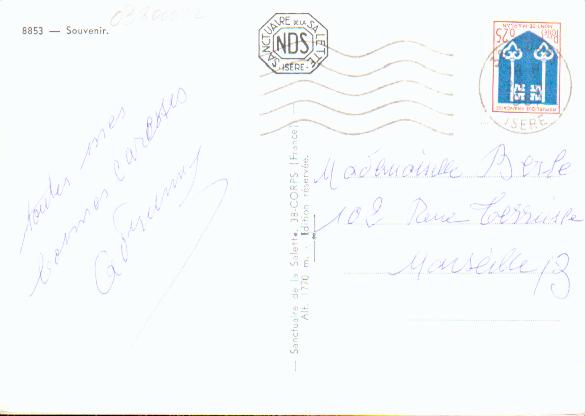 8853 — Souvenir.
SANCTUAIRE DE LA SALETTE
NDS
ISÈRE
0.25
ISERE
toutes mes
bonnes caresses
— Sanctuaire de la Salette, 38-CORPS (France)
Alt. 1.770 m. - Édition réservée.
Mademoiselle Berte
102 Rue
Marseille 13